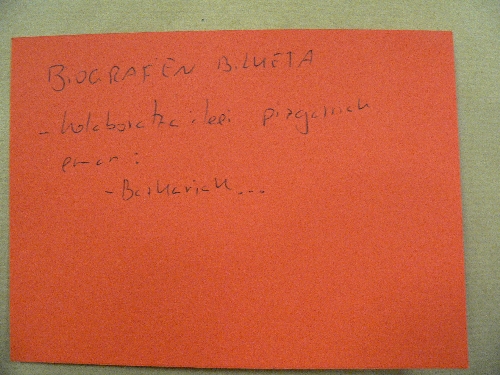 BIOGRAFEN BILKETA
- kolaboratzaileei pizgarriak
eman:
- Bazkariak...